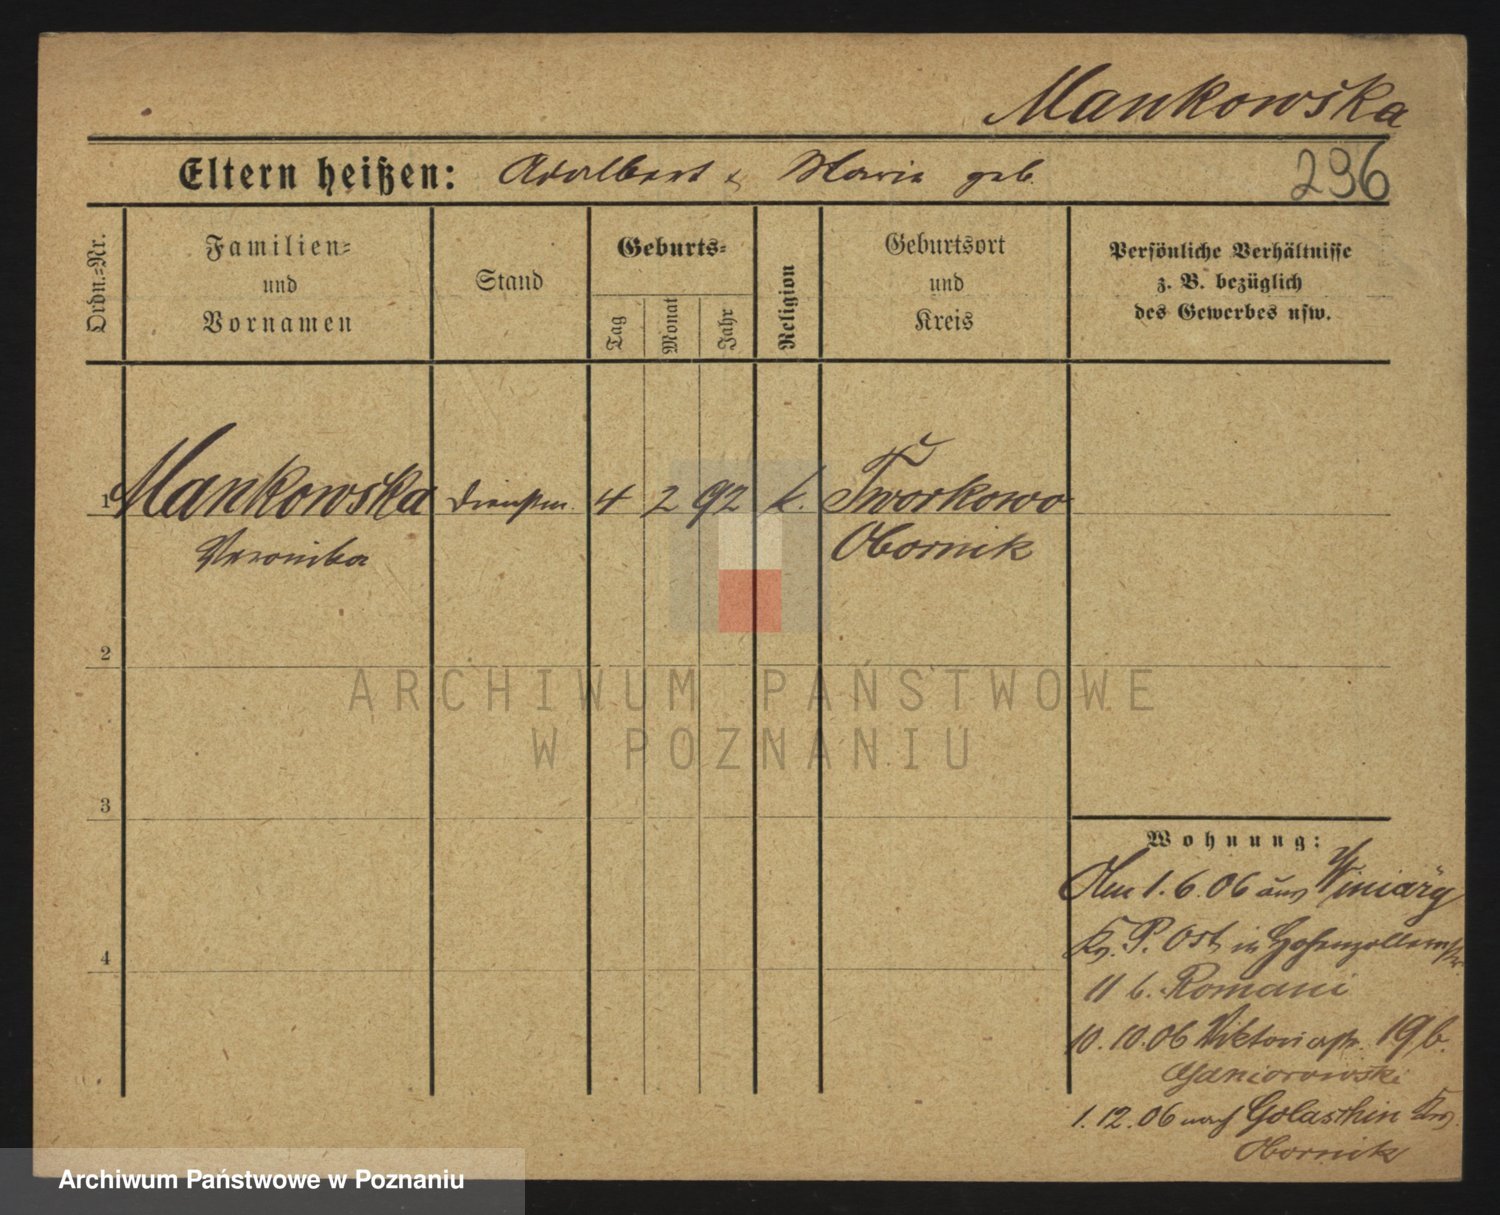 Mankowska
Eltern heißen: Adalbert & Maria geb.
296
Ordn.=Nr.
Familien=
und
Vornamen
Stand
Geburts=
Tag
Monat
Jahr
Religion
Geburtsort
und
Kreis
Persönliche Verhältnisse
z. B. bezüglich
des Gewerbes usw.
1 Mankowska Dienstm. 4 2 92 k. Tworkowo
Veronika Obornik
2
3
4
ARCHIWUM PAŃSTWOWE
W POZNANIU
Wohnung:
Den 1.6.06 aus Winiary
Kr. P. Ost in Hohenzollernstr.
11 b. Romani
10.10.06 Viktoriastr. 19 b.
1.12.06 nach Golaschin Krs.
Obornik
Archiwum Państwowe w Poznaniu